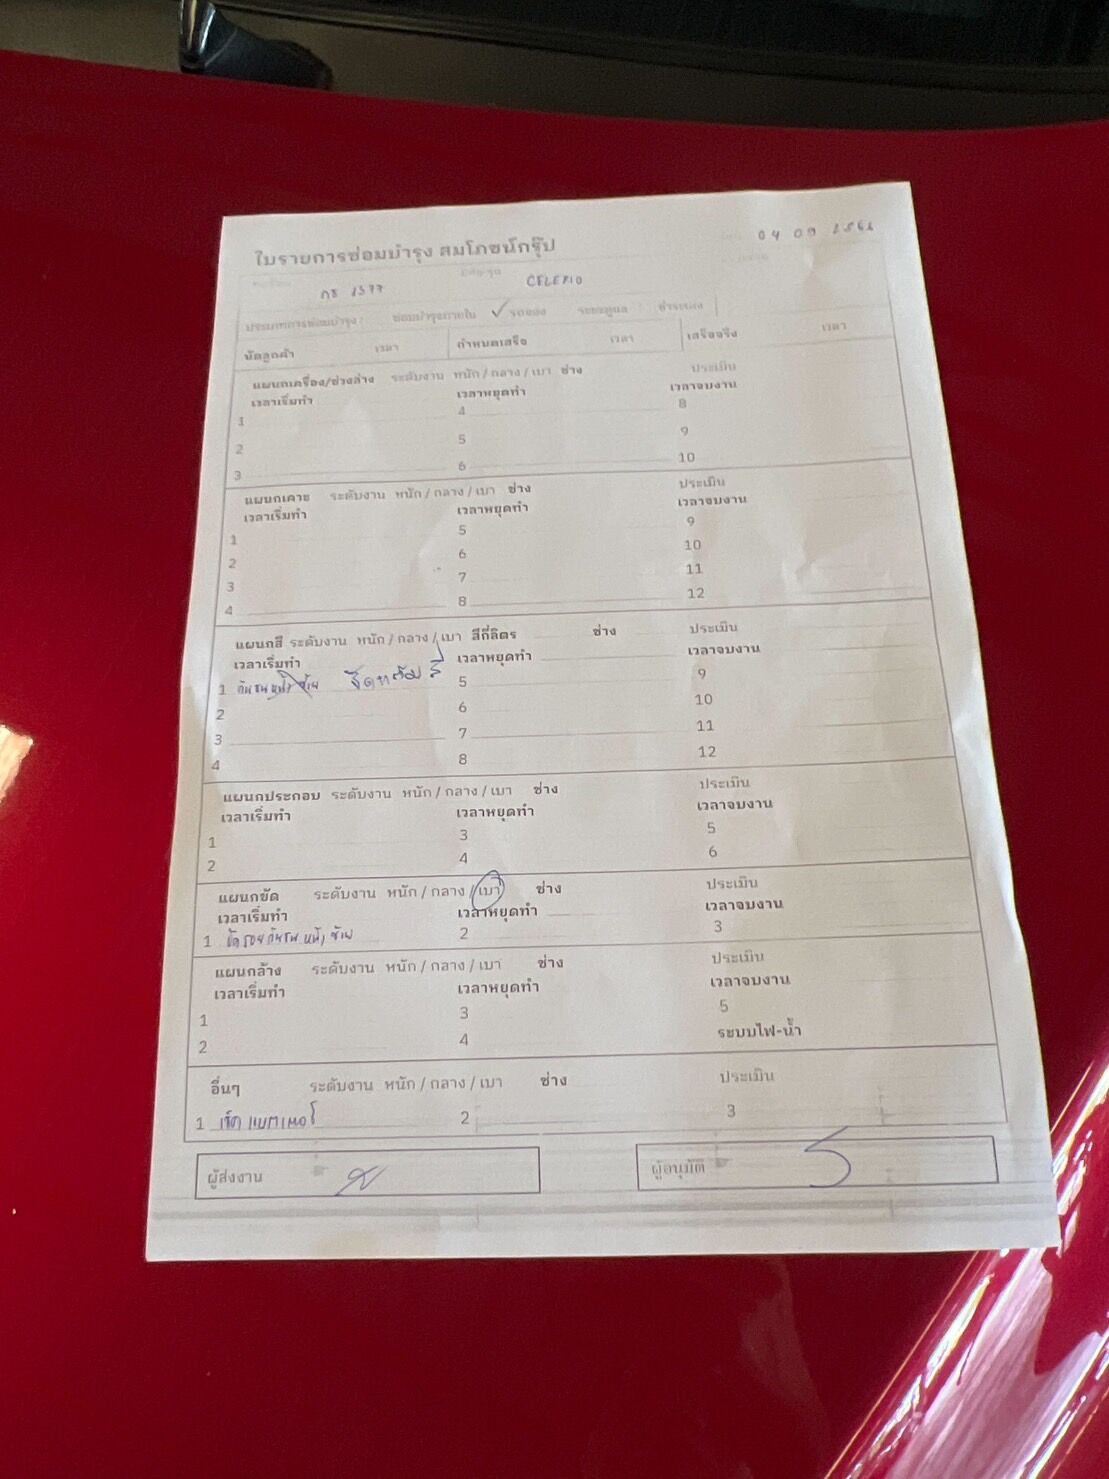 ใบรายการซ่อมบำรุง สมโภชน์กรุ๊ป
04 09 256
1377 CELERIO
ประเภทการซ่อมบำรุง : ซ่อมบำรุงภายใน ✓ รถจอง
นัดลูกค้า เวลา กำหนดเสร็จ เวลา เสร็จจริง เวลา
แผนกเครื่อง/ช่วงล่าง ระดับงาน หนัก / กลาง / เบา ช่าง ประเมิน
เวลาเริ่มทำ เวลาหยุดทำ เวลาจบงาน
1 4 8
2 5 9
3 6 10
แผนกเคาะ ระดับงาน หนัก / กลาง / เบา ช่าง ประเมิน
เวลาเริ่มทำ เวลาหยุดทำ เวลาจบงาน
1 5 9
2 6 10
3 7 11
4 8 12
แผนกสี ระดับงาน หนัก / กลาง / เบา สีกี่ลิตร ช่าง ประเมิน
เวลาเริ่มทำ เวลาหยุดทำ เวลาจบงาน
1 กันชนหน้าซ้าย 5 9
2 6 10
3 7 11
4 8 12
แผนกประกอบ ระดับงาน หนัก / กลาง / เบา ช่าง ประเมิน
เวลาเริ่มทำ เวลาหยุดทำ เวลาจบงาน
1 3 5
2 4 6
แผนกขัด ระดับงาน หนัก / กลาง / เบา ช่าง ประเมิน
เวลาเริ่มทำ เวลาหยุดทำ เวลาจบงาน
1 ขัดรอยกันชนหน้าซ้าย 2 3
แผนกล้าง ระดับงาน หนัก / กลาง / เบา ช่าง ประเมิน
เวลาเริ่มทำ เวลาหยุดทำ เวลาจบงาน
1 3 5
2 4 ระบบไฟ-น้ำ
อื่นๆ ระดับงาน หนัก / กลาง / เบา ช่าง ประเมิน
1 เช็คแบตเตอรี่ 2 3
ผู้ส่งงาน ผู้อนุมัติ